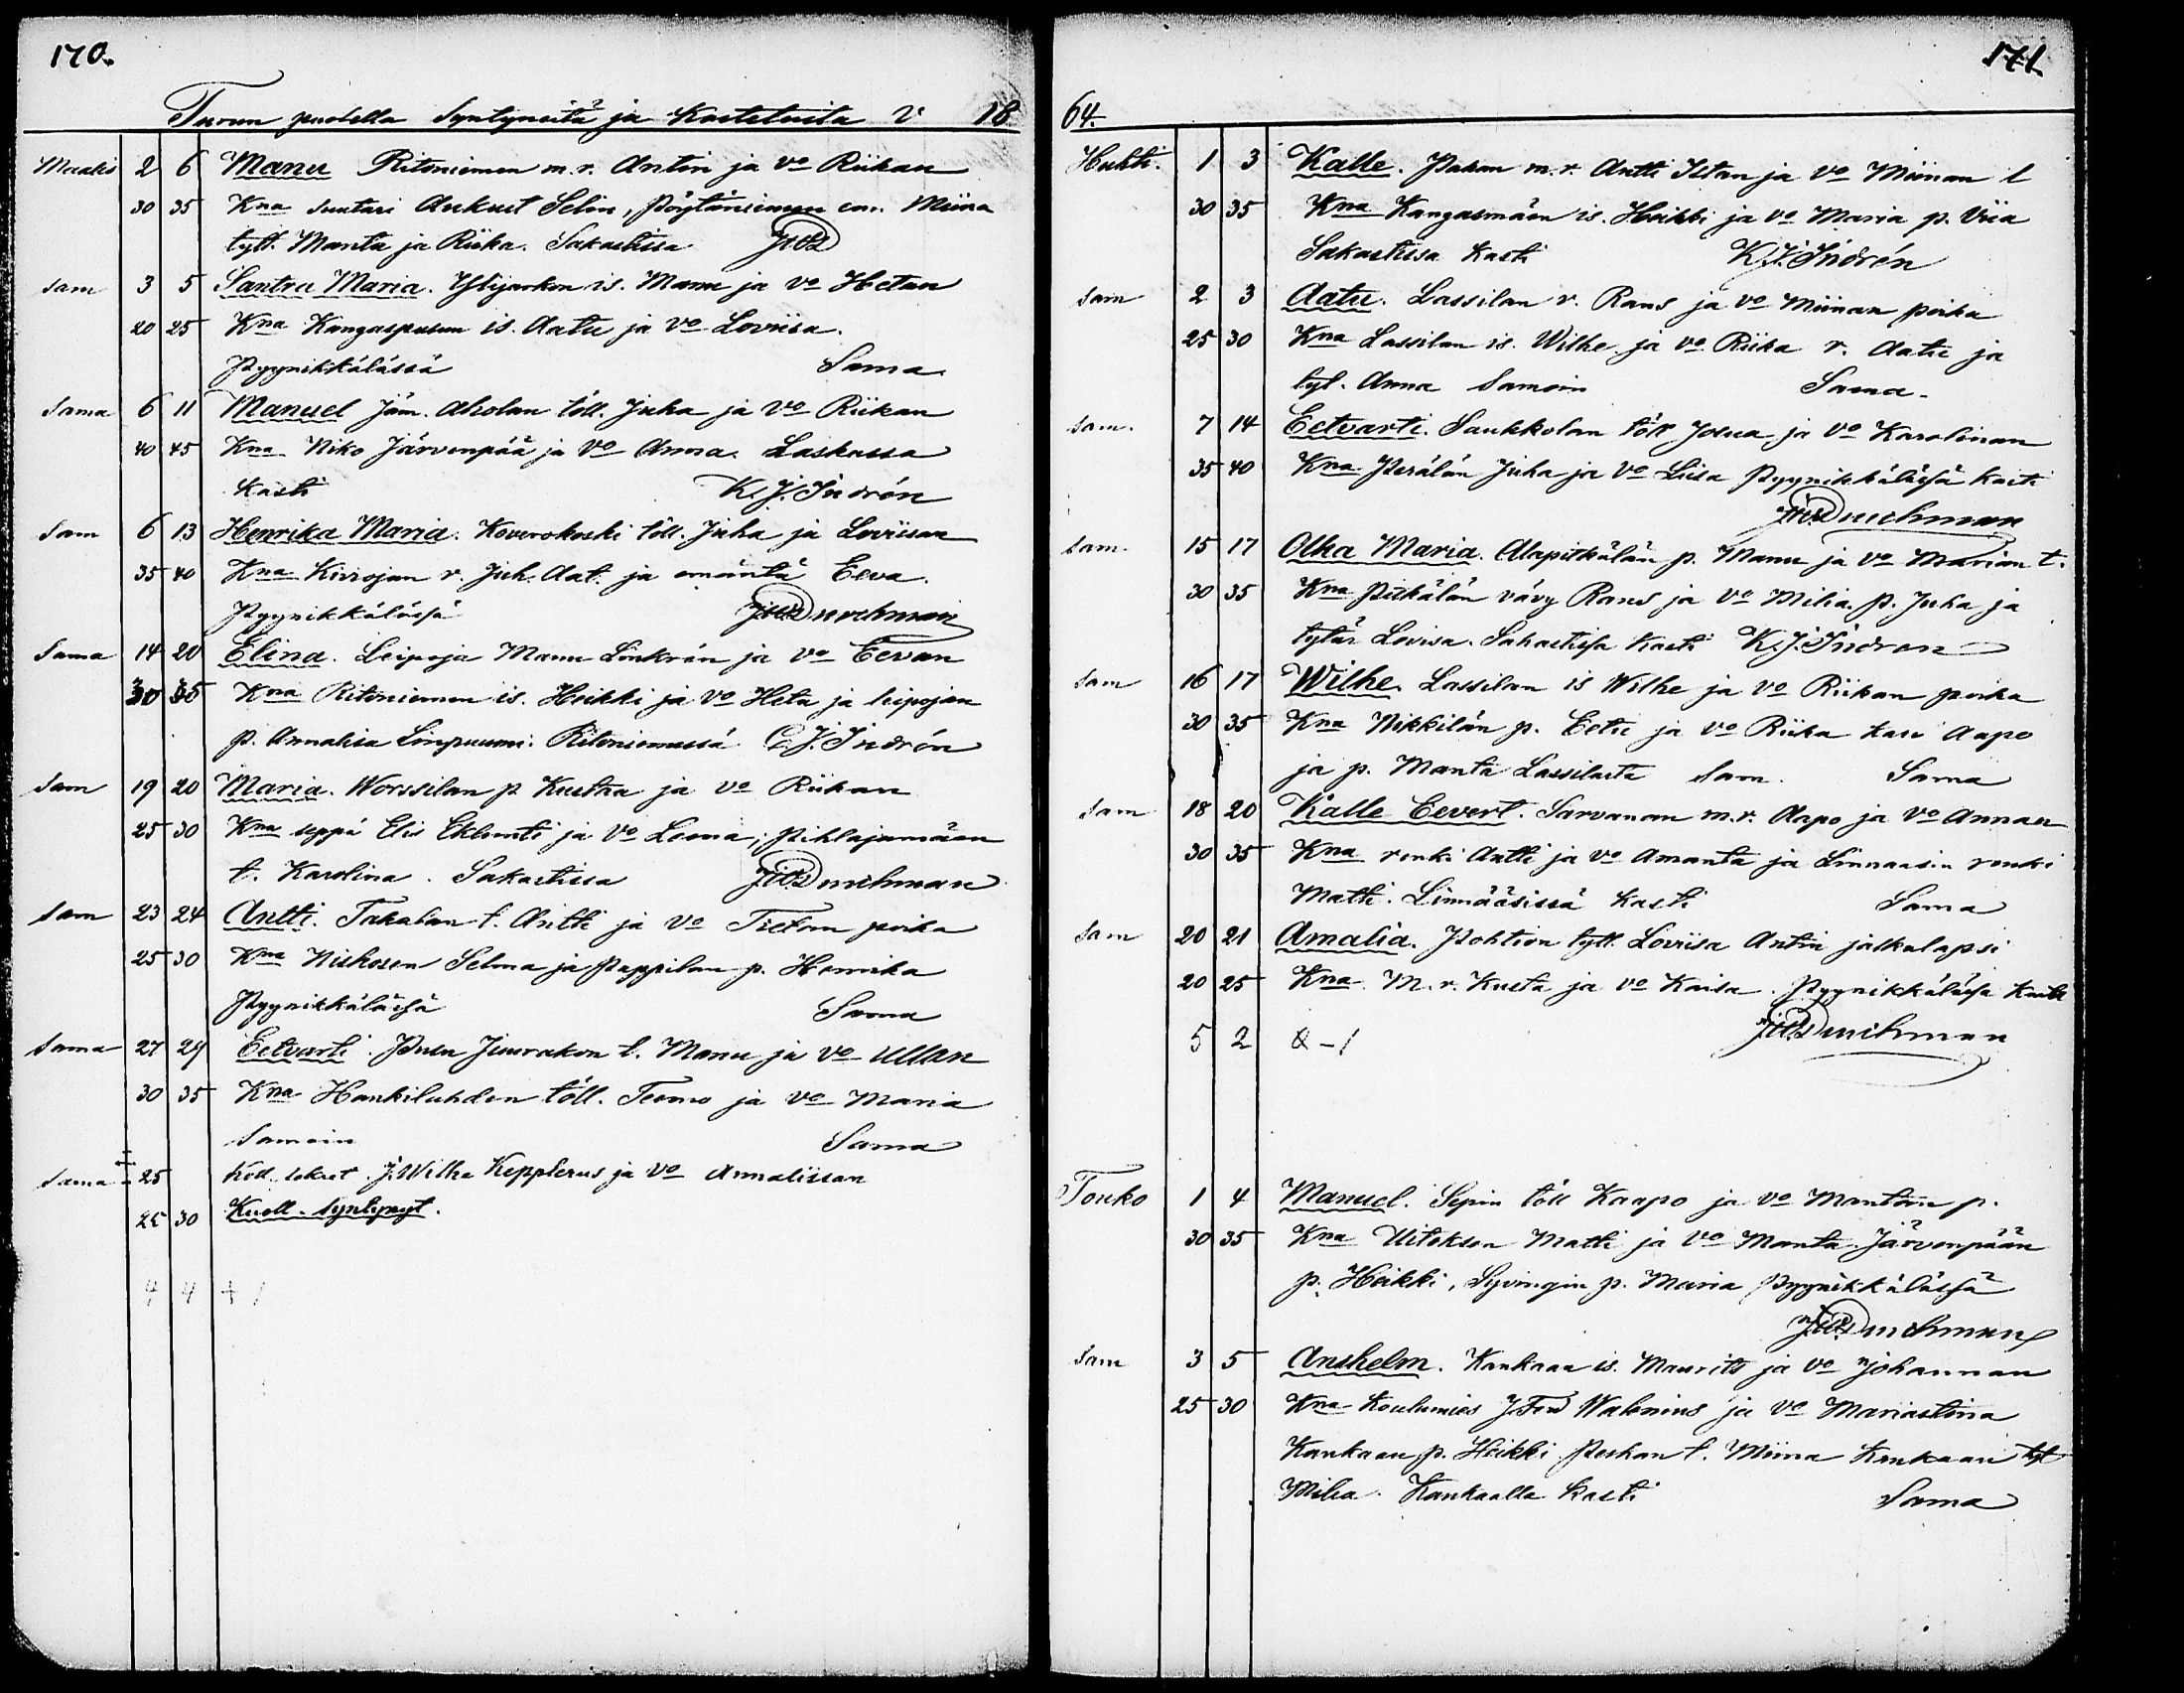 170.
Turun puolella Syntyneitä ja Kastetuita V 18
Maalis 2 6 Manu Ritoniemen m.r. Antin ja Vo Riikan
30 35 Kna suutari Aukust Selin, Pöytäniemen em. Miina
tytt. Manta ja Riika. Sakastissa
Sam 3 5 Santra Maria. Ylijaakon is. Manu ja Vo Hetan
20 25 Kna Kangaspusun is. Aatu ja Vo Loviisa.
Pyynikkälässä Sama
Sama 6 11 Manuel Jäm. Aholan töll. Juha ja Vo Riikan
40 45 Kna Niko Järvenpää ja Vo Anna. Laskassa
Kasti K.J. Indrén
Sam 6 13 Henrika Maria. Koverokoski töll. Juha ja Loviisan
35 40 Kna Kiviojan r. Juh. Aat. ja emäntä Eeva.
Pyynikkälässä
Sama 14 20 Elina. Leipoja Manu Linkrén ja Vo Eevan
30 35 Kna Ritoniemen is. Heikki ja Vo Heta ja leipojan
p. Annaliisa Ritoniemessä C.J. Indrén
Sam 19 20 Maria. Worssilan p Kustaa ja Vo Riikan
25 30 Kna seppä Elis Eklunti ja Vo Leena, Pihlajamäen
t. Karolina. Sakastissa
Sam 23 24 Antti. Takalan t. Antti ja Vo Tretan poika
25 30 Kna Niskosen Selma ja Pappilan p. Henrika
Pyynikkälässä Sama
Sama 27 29 Eetvarti. Pusu Juurakon t. Manu ja Vo Ullan
30 35 Kna Hankiluhden töll. Teemo ja Vo Maria
Samoin Sama
Sama 25 Koll. sekret. J. Wilhe Kepplerus ja Vo Annaliisan
25 30 Kuoll. syntynyt.
4 4 + 1
171.
64.
Huhti. 1 3 Kalle. Puhan m.r. Antti Iitan ja Vo Miinan l
30 35 Kna Kangasmäen is. Heikki ja Vo Maria p. Viia
Sakastissa Kasti K.J. Indrén
Sam 2 3 Aatu. Lassilan v. Rans ja Vo Miinan poika
25 30 Kna Lassilan is. Wilhe ja Vo Riika r. Aatu ja
tyt. Anna Samoin Sama
Sam. 7 14 Eetvarti. Saukkolan töll Josua ja Vo Karolinan
35 40 Kna Perälän Juha ja Vo Liisa Pyynikkälässä Kasti
Sam. 15 17 Olka Maria. Alapitkälän p. Manu ja Vo Marian t.
30 35 Kna Pitkälän vävy Rans ja Vo Milia. p. Juha ja
tytär Loviisa. Sakastissa Kasti K.J. Indren
Sam 16 17 Wilhe. Lassilan is Wilhe ja Vo Riikan poika
30 35 Kna Nikkilän p. Eetu ja Vo Riika Aapo
ja p. Manta Lassilasta Sam. Sama
Sam 18 20 Kalle Eevert. Sarvanan m.r. Aapo ja Vo Annan
30 35 Kna renki Antti ja Vo Amanta ja Linnaasin renki
Matti. Linnääsissä Kasti Sama
Sam 20 21 Amalia. Pohtion tytt. Loviisa Antin jalkalapsi
20 25 Kna M.r. Kusta ja Vo Kaisa. Pyynikkälässä Kasti
5 2 – 1
Touko 1 4 Manuel. Sepin töll Kaapo ja Vo Mantan p.
30 35 Kna Uitoksen Matti ja Vo Manta Järvenpään
p. Heikki, Syvingin p. Maria Pyynikkälässä
Sam 3 5 Anshelm. Kankaan is. Maurits ja Vo Johannan
25 30 Kna Koulumies Walenius ja Vo Mariastiina
Kankaan p. Heikki Peskan t. Miina Kankaan tyt
Milia. Kankaalla Kasti Sama